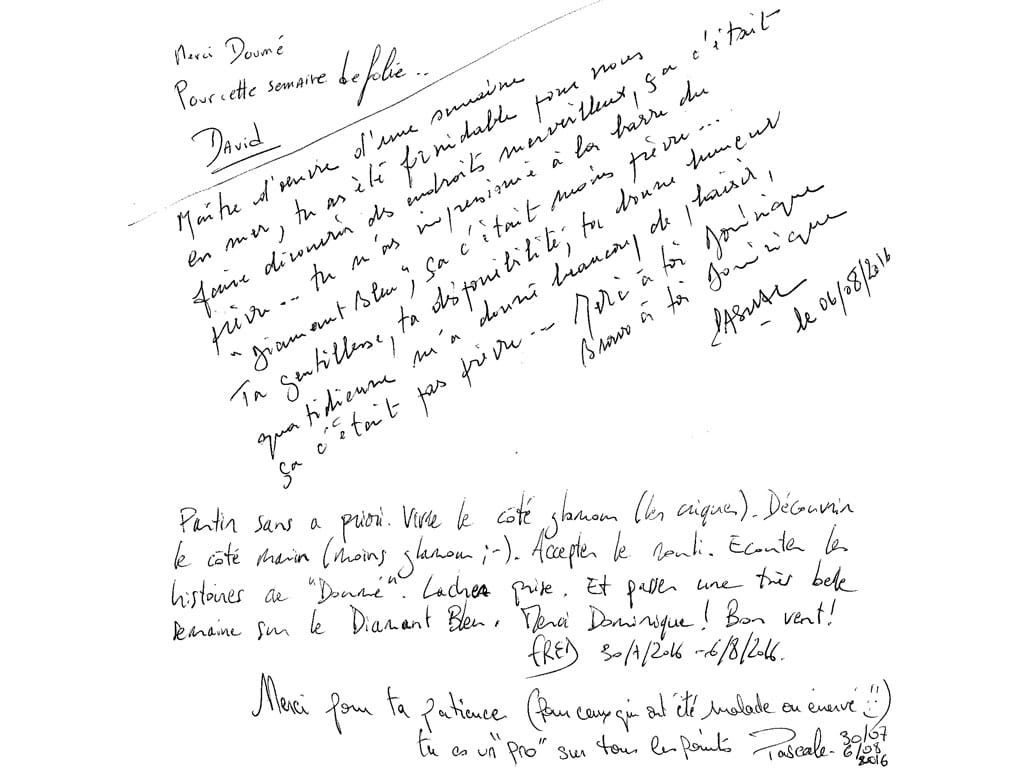 Merci Doumé
Pour cette semaine de folie..
David
Maître d'œuvre d'une semaine
en mer, tu as été formidable pour nous
faire découvrir des endroits merveilleux, ça c'était
mièvre... tu m'as impressionné à la barre du
"Diamant Bleu", ça c'était moins mièvre...
Ta gentillesse, ta disponibilité, ta bonne humeur
quotidienne m'a donné beaucoup de plaisir,
ça c'était pas mièvre... Merci à toi Dominique
Bravo à toi Dominique
le 06/08/2016
Partir sans a priori. Vivre le côté glamour (les criques). Découvrir
le côté marin (moins glamour ;-). Accepter le roulis. Ecouter les
histoires de "Doumé". Lacher prise. Et passer une très belle
semaine sur le Diamant Bleu. Merci Dominique! Bon vent!
FRED 30/7/2016 - 6/8/2016.
Merci pour ta patience (pour ceux qui ont été malade ou énervé)
tu es un "pro" sur tous les points Pascale - 30/07
6/08
2016